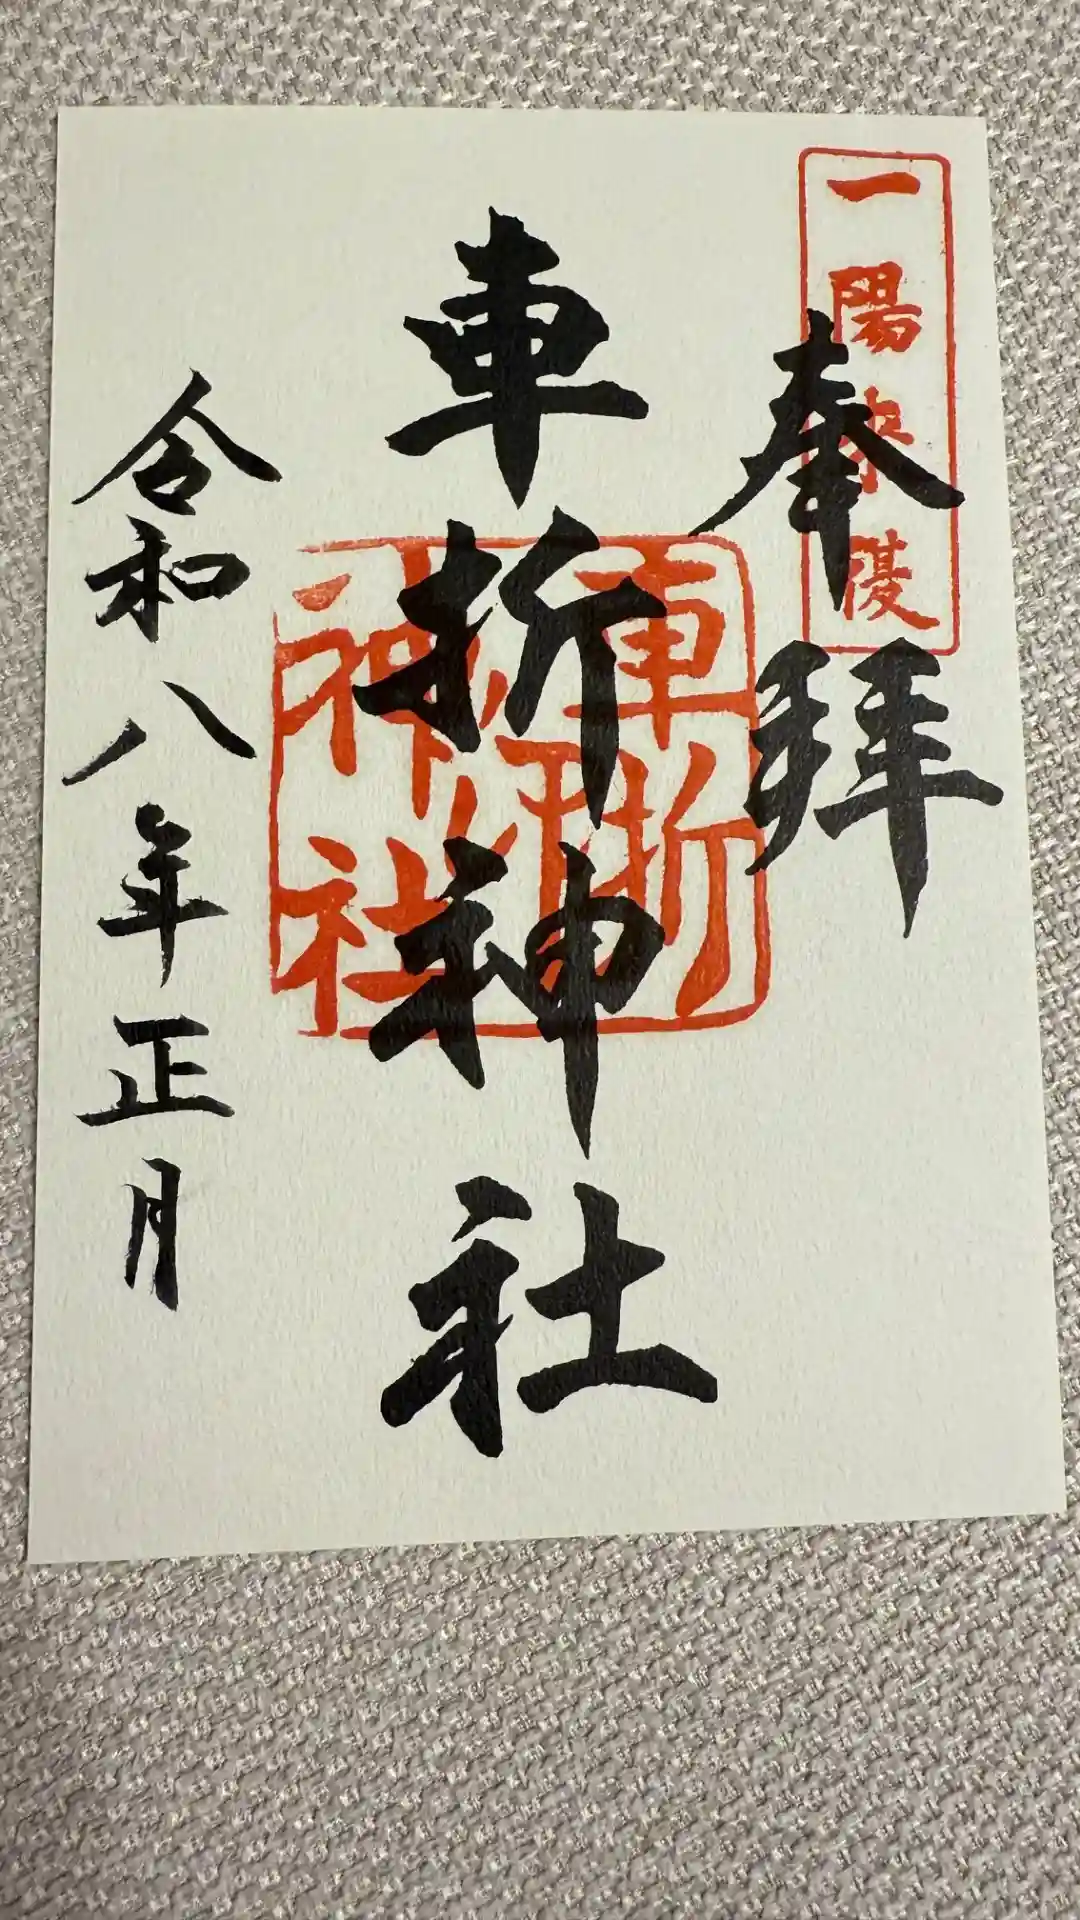 一陽来復
奉拝
車折神社
車折
神社
令和八年正月